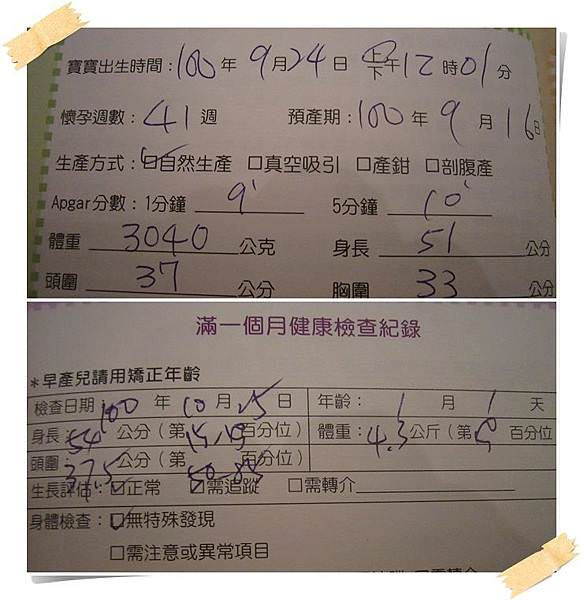 寶寶出生時間:100年 9月24日 上下午12時01分
懷孕週數:41週 預產期:100年 9月16日
生產方式:☑自然生產 □真空吸引 □產鉗 □剖腹產
Apgar分數:1分鐘 9' 5分鐘 10'
體重 3040 公克 身長 51 公分
頭圍 37 公分 胸圍 33 公分
滿一個月健康檢查紀錄
*早產兒請用矯正年齡
檢查日期 100年 10月25日 年齡: 1月 1天
身長:54公分(第 百分位) 體重:4.3公斤(第 百分位
頭圍:37.5公分(第 百分位)
生長評估:☑正常 ☑需追蹤 □需轉介
身體檢查:☑無特殊發現
□需注意或異常項目